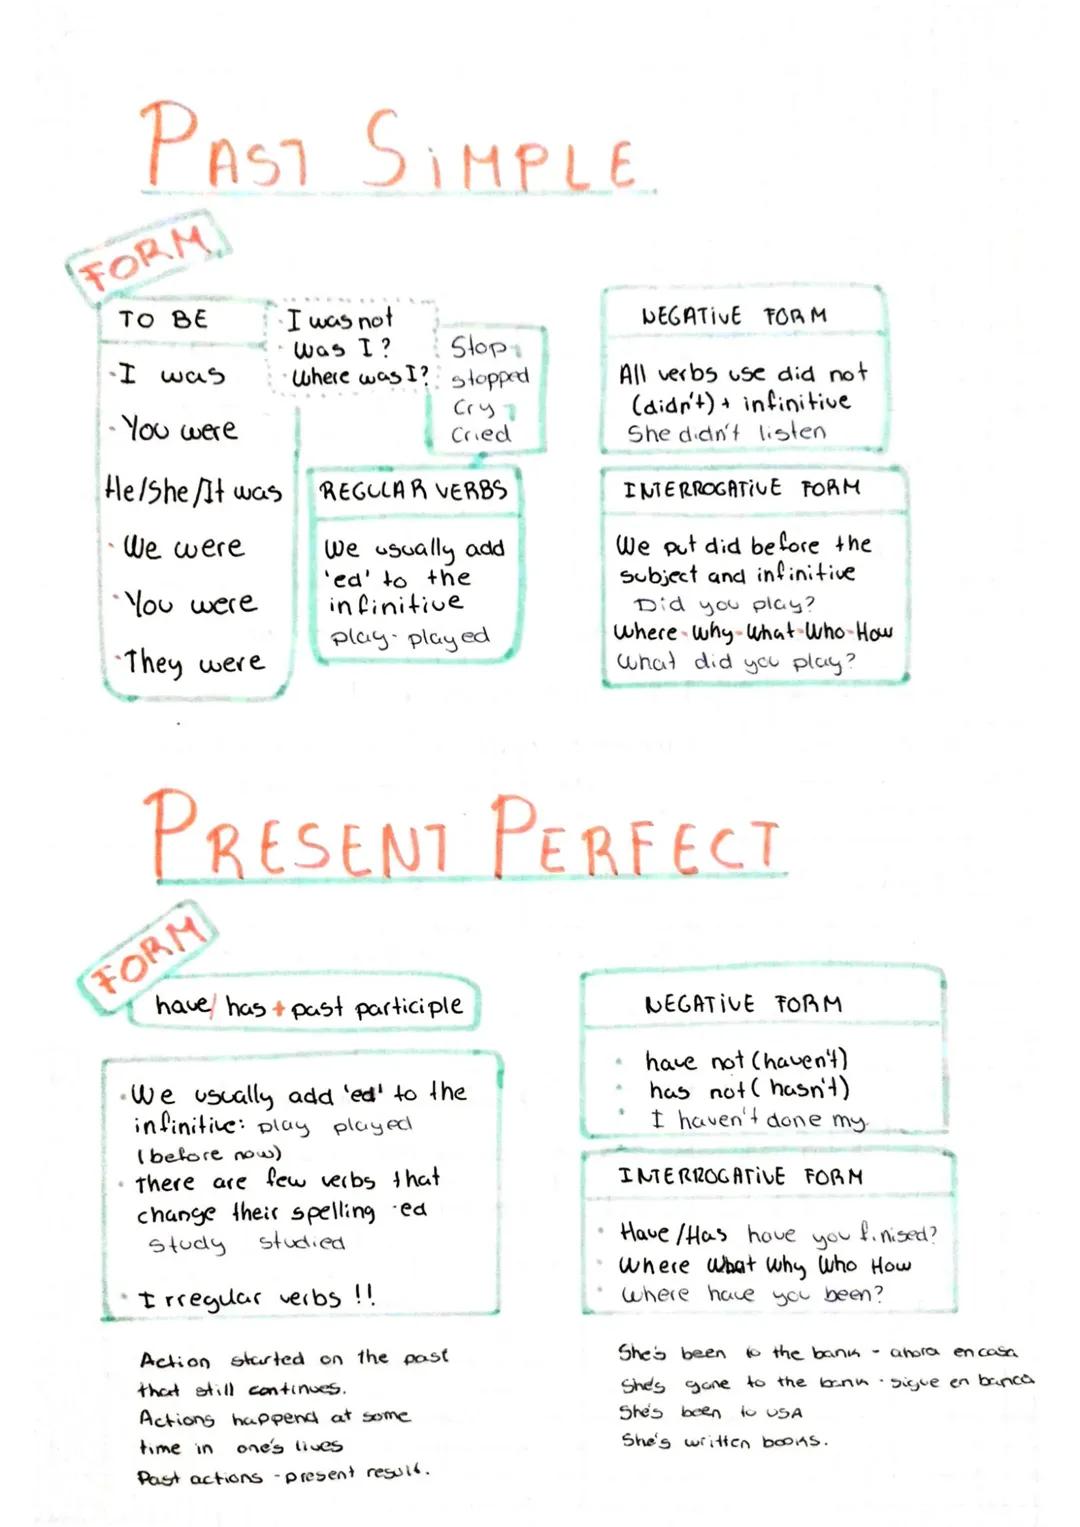 PAST SIMPLE
FORM
TO BE
·I was
·You were
He/She/It was
·We were
·You were
·They were
·I was not
·Was I?
·Where was I?
Stop
stopped
Cry
Cried
REGULAR VERBS
We usually add
'ed' to the
infinitive
play- played
NEGATIVE FORM
All verbs use did not
(didn't) + infinitive
She didn't listen
INTERROGATIVE FORM
We put did before the
subject and infinitive
Did you play?
Where-Why-What-Who-How
What did you play?
PRESENT PERFECT
FORM
have/has + past participle
·We usually add 'ed' to the
infinitive: play played
(before now)
·there are few verbs that
change their spelling -ed
study studied
·Irregular verbs !!
Action started on the past
that still continues.
Actions happend at some
time in one's lives
Past actions - present result.
NEGATIVE FORM
· have not (haven't)
· has not (hasn't)
· I haven't done my
INTERROGATIVE FORM
· Have/Has have you finised?
· Where What Why Who How
· Where have you been?
She's been to the bank - ahora en casa
She's gone to the bank - sigue en banca
She's been to USA
She's written books.